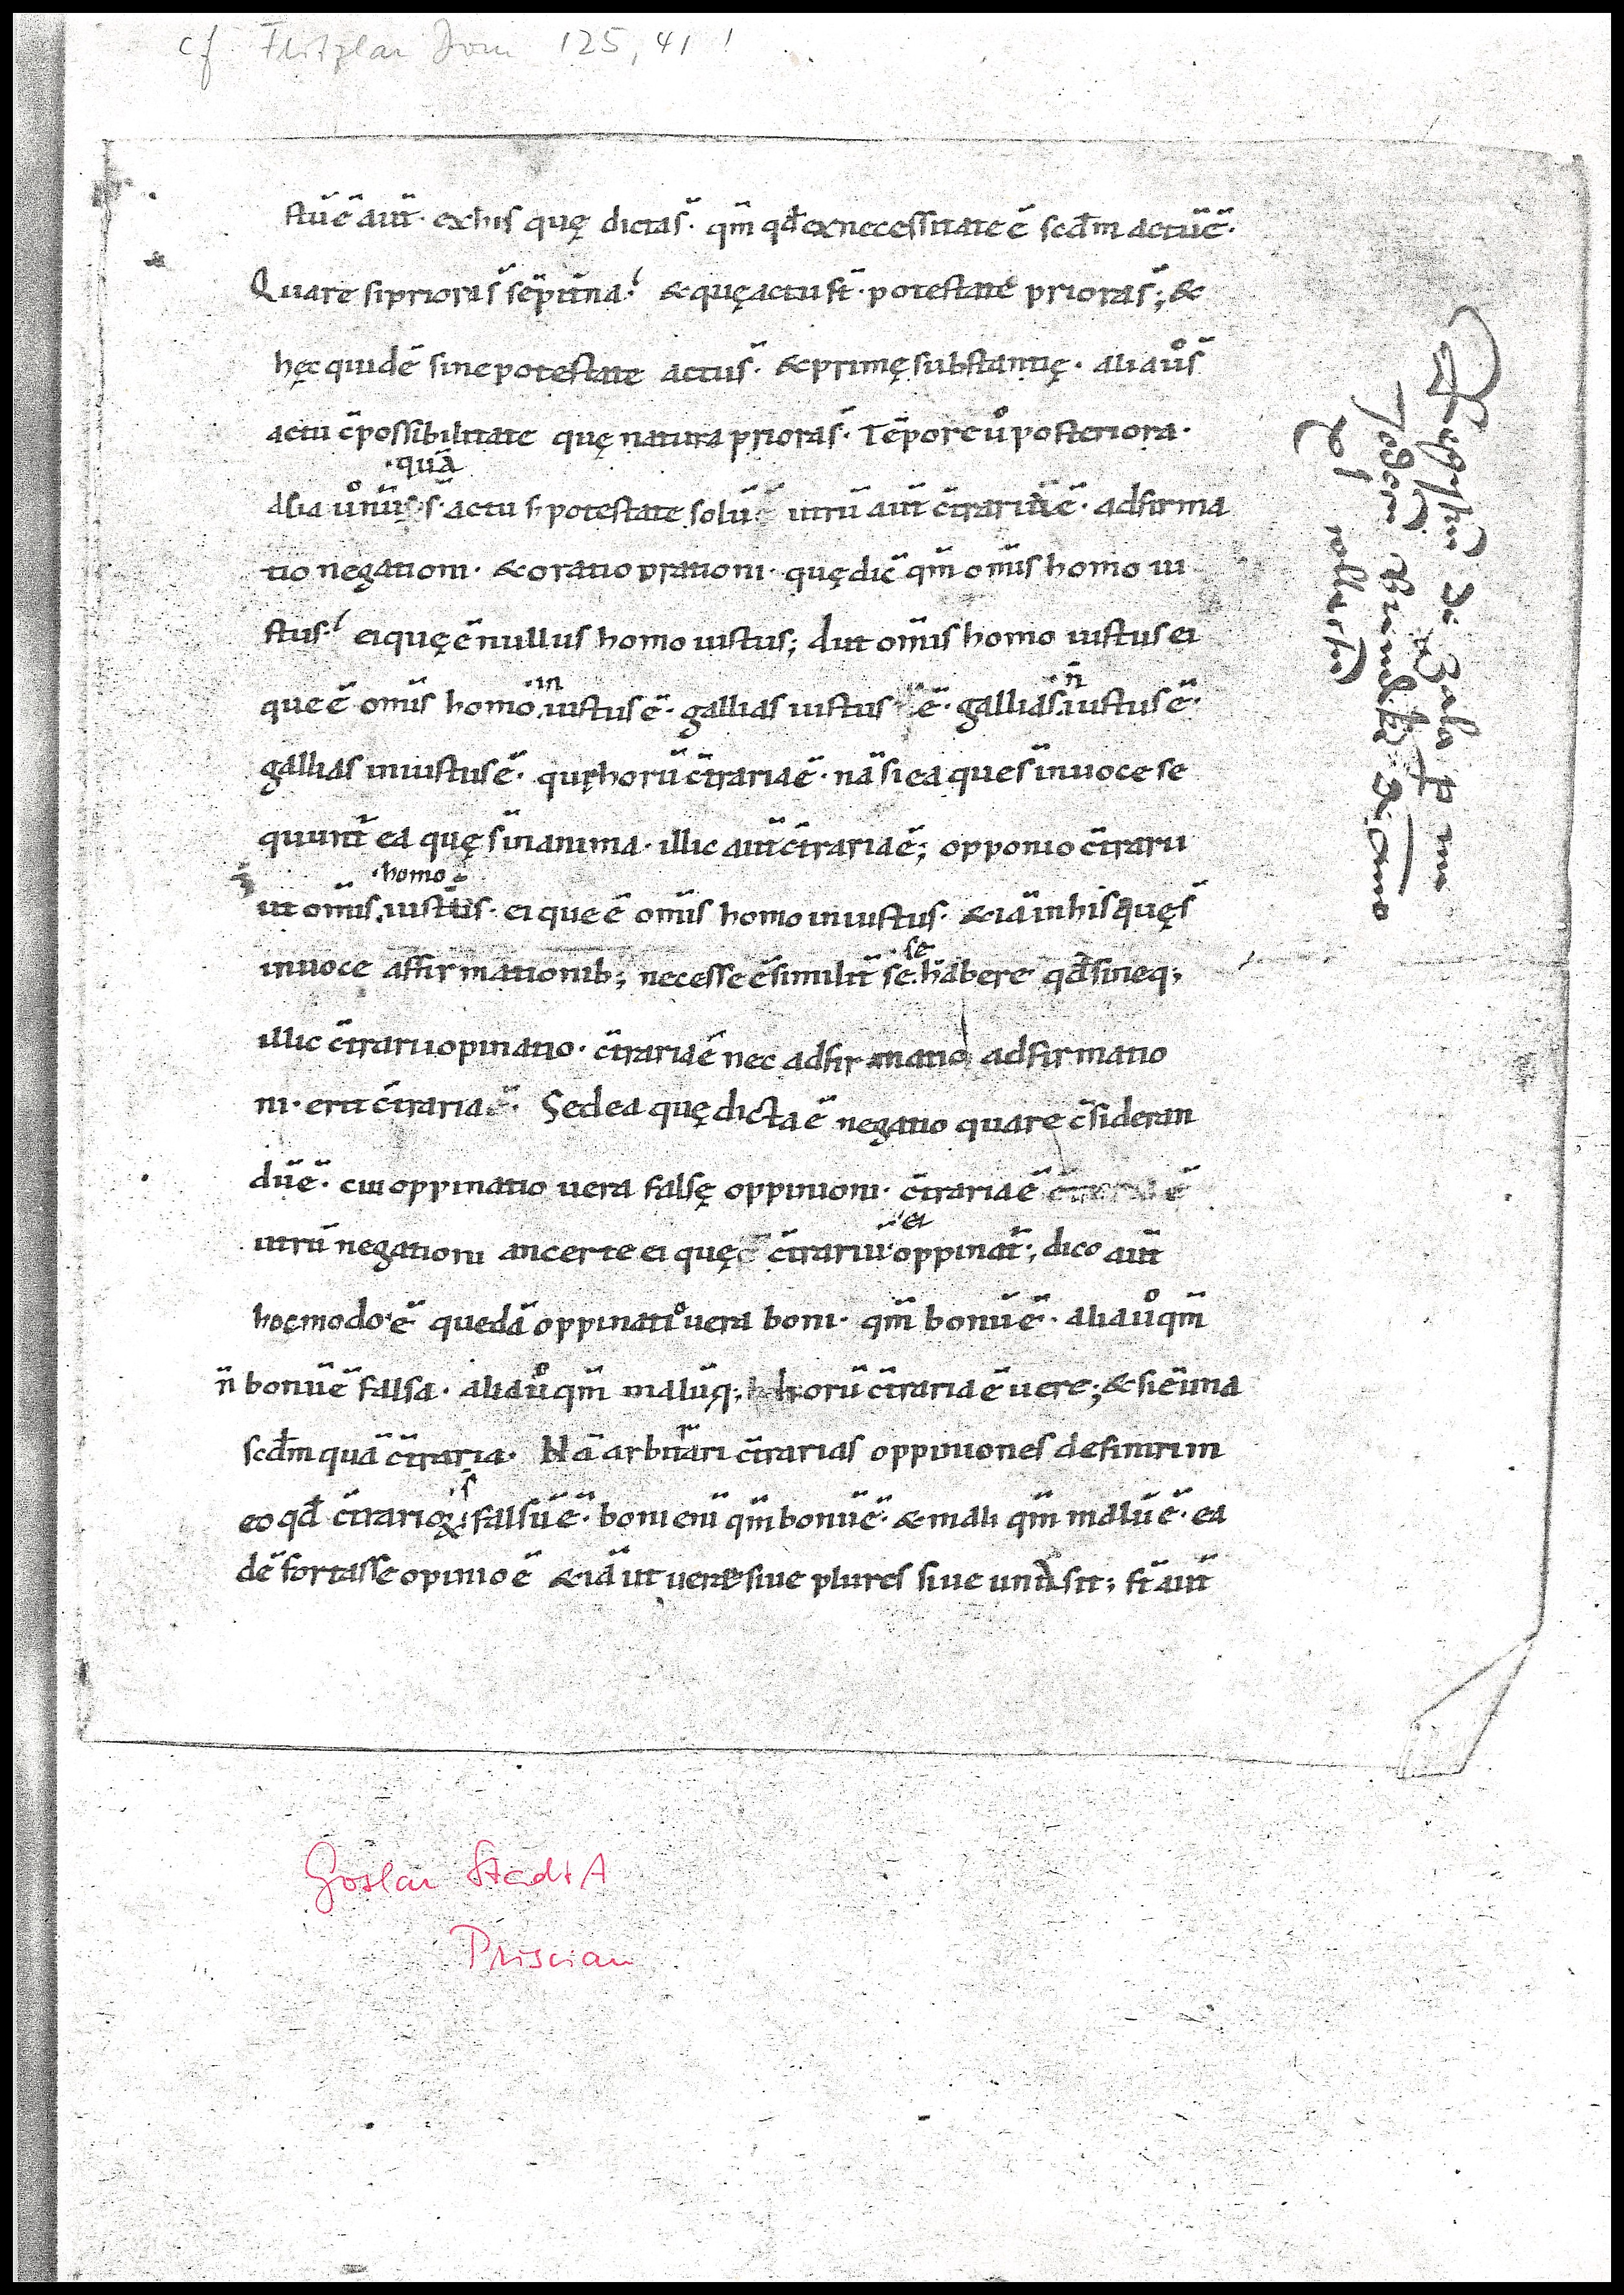 cf Fritzlar Dom 125, 41!
stū ē aut̄· ex his quę dicta s̄· qm̄ qđ ex necessitate ē scđm actū ē·
Quare si priora s̄ sēpit̄na·′ & quę actu st̄· potestate priora s̄; &
hęc quidē sine potestate actus̄· & primę substantię· alia ůs̄
actu c̄ possibilitate quę natura priora s̄· Tēpore ů posteriora·
·quā
alia ů nūs̄· s̄· actu s· potestate solū utrū aut̄ c̄traria ē· adfirma
tio negationi· & oratio orationi· quę dic̄ qm̄ om̄is homo iu
stus·′ ei quę ē nullus homo iustus; Aut om̄is homo iustus ei
·in n̄
que ē om̄is homo iustus ē· gallias iustus ē· gallias iustus ē·
gallias iniustus ē· quę horū c̄traria ē· nā si ea que s̄ in uoce se
quunt̄ ea quę s̄ in anima· illic aut̄ c̄traria ē; opponio c̄trarii
·homo
ut om̄is iustus· ei que ē om̄is homo iniustus· & iā in his quę s̄
se
in uoce affirmationib; necesse ē similit̄ sē habere qđ si neq;
illic c̄trarii opinatio· c̄traria ē nec adfirmatio adfirmatio
ni· erit c̄traria· Sed ea quę dicta ē negatio quare c̄sideran
dū ē· cui oppinatio uera falsę oppinioni· c̄traria ē ē
et
utrū negationi an certe ei quę c̄trariū oppinat̄; dico aut̄
hoc modo· ē quedā oppinatio uera boni· qm̄ bonū ē· alia ů qm̄
n̄ bonū ē falsa· alia ů qm̄ malū q; horū c̄traria ē uere; & si ē una
scđm quā c̄traria· Nā arbitrari c̄trarias oppiniones definiri in
eo qđ c̄trarioꝝ falsū ē· boni eni qm̄ bonū ē· & mali qm̄ malū ē· ea
dē fortasse opinio ē & iā ut uere siue plures siue una sit; st̄ aut̄
Goslar StadtA
Priscian